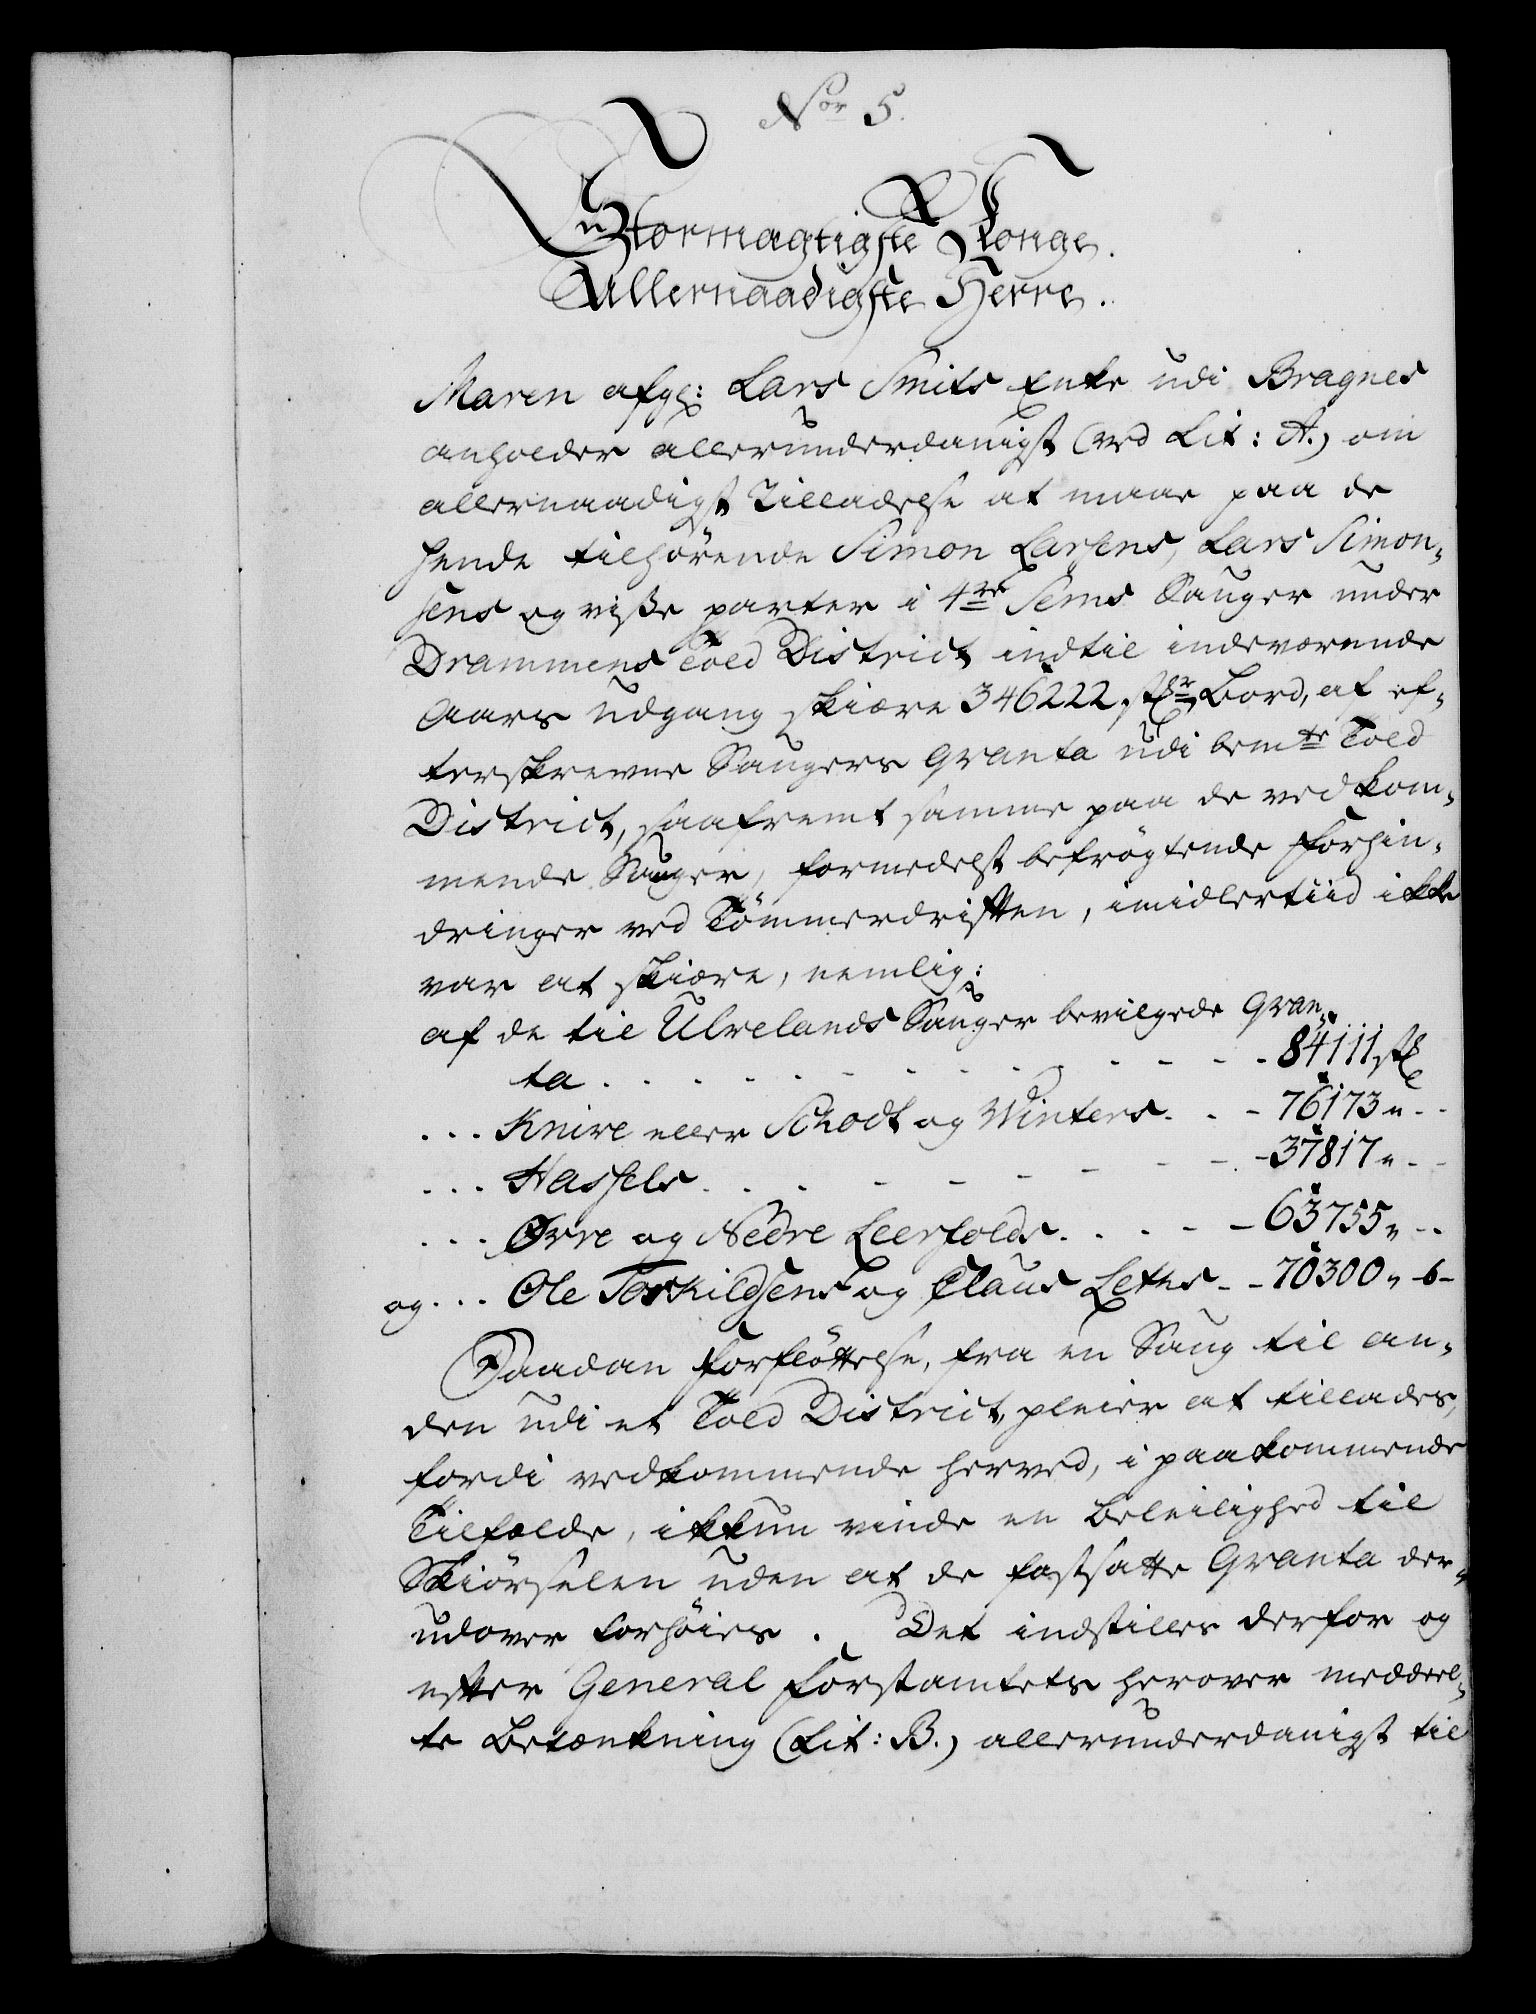 Nor 5.
Stormagtigste Konge.
Allernaadigste Herre.
Maren afg: Lars Smits Enke udi Bragnes
anholder allerunderdanigst (ved Lit: A.) om
allernaadigst Tilladelse at maae paa de
hende tilhørende Simon Larsens, Lars Simon-
sens og visse parter i 4re Sems Sauger under
Drammens Told District indtil indeværende
Aars Udgang skiære 346222 stkr Bord, af ef-
terskrevne Saugers Qvanta udi bemte Told
District, saafremt samme paa de vedkom-
mende Sauger, formedelst befrøgtende Forhin-
dringer ved Tømmerdriften, imidlertiid ikke
var at skiære, nemlig:
af de til Ulvelands Sauger bevilgede Qvan-
ta . . . . . . . . . . - 84111 stk
. . . Knive eller Schodt og Winters . . - 76173 " - -
. . . Hassels . . . . - - - - 37817 " - -
. . . Øvre og Nedre Leerfolds . . . - - 63755 " - -
og . . . Ole Torkildsens og Claus Leths - - 70300 " - 6 -
Saadan Forfløttelse, fra en Saug til an-
den udi et Told District, pleier at tillades,
fordi vedkommende herved, i paakommende
Tilfælde, ikkun vinde en Beleilighed til
Skiørselen uden at de fastsatte Qvanta der-
udover forhøies. Det indstilles derfor og
efter General Forstamtets herover meddeel-
te Betænkning (Lit: B.) allerunderdanigst til